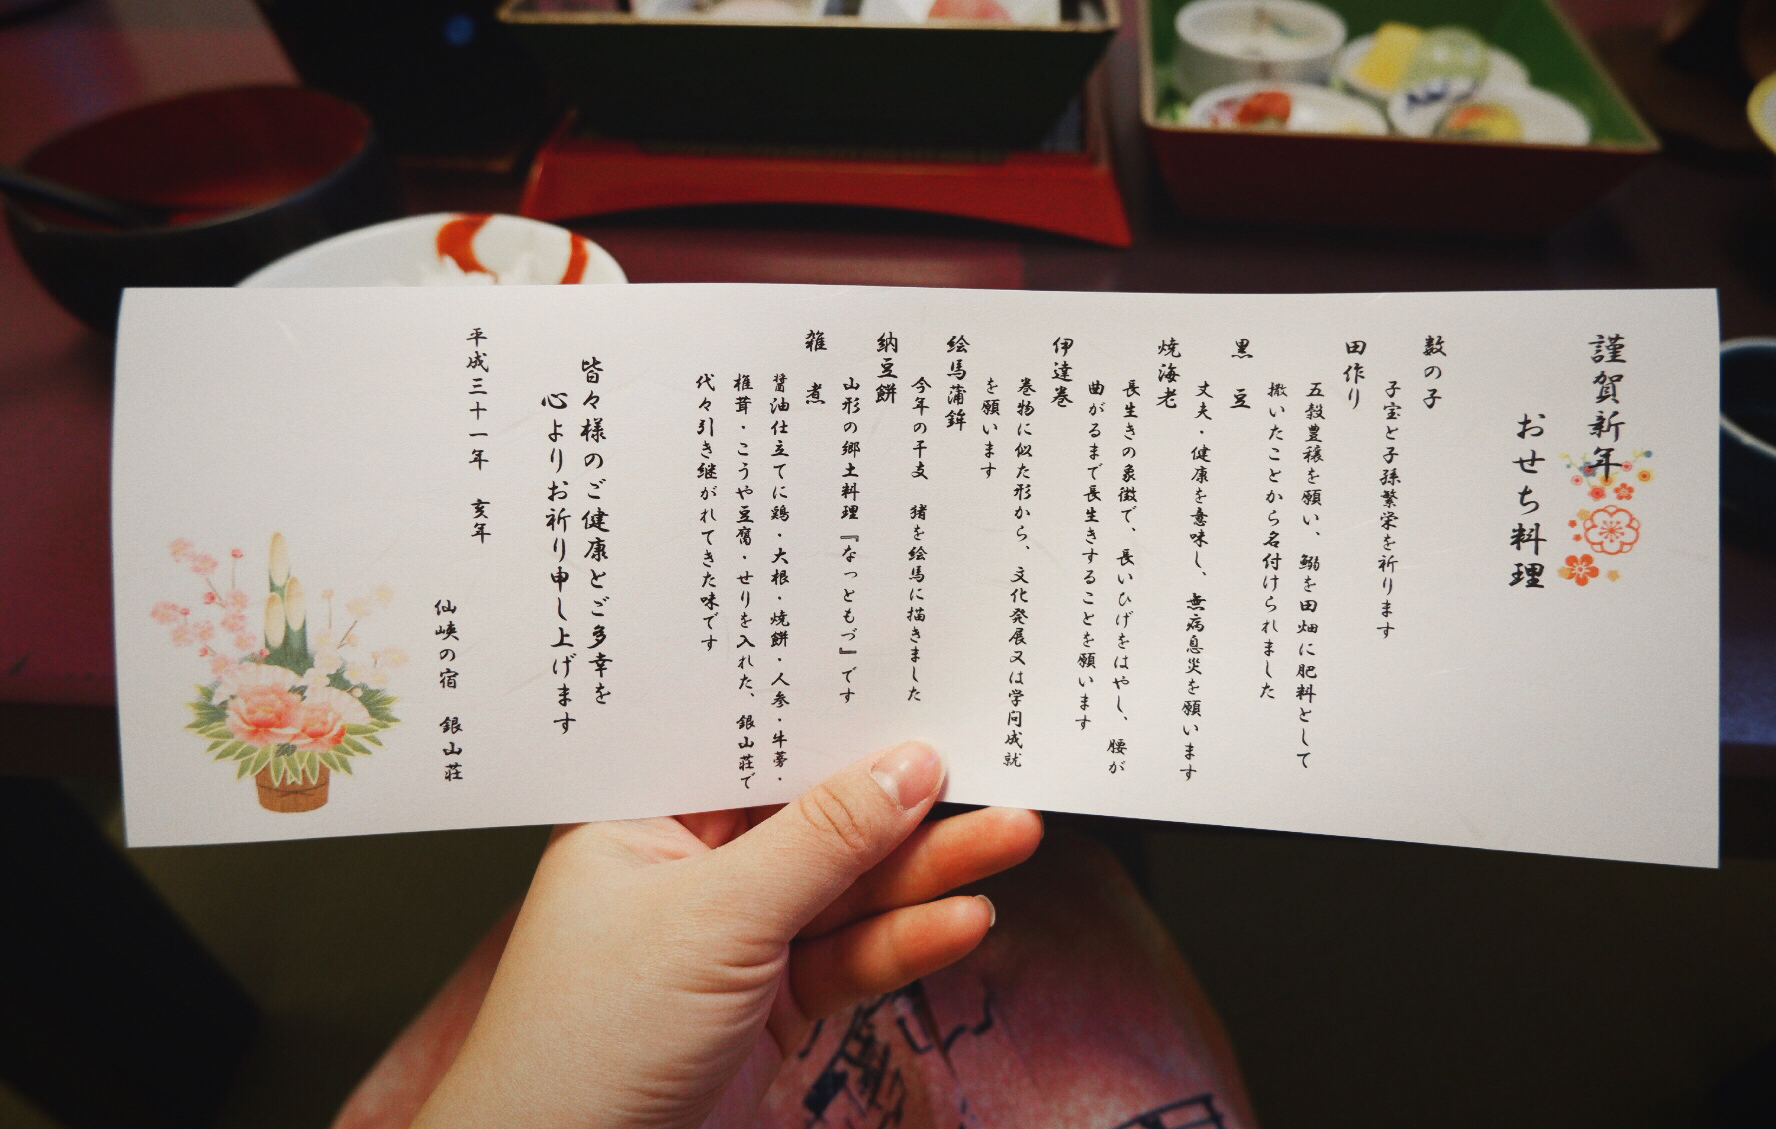 謹賀新年
おせち料理
数の子
子宝と子孫繁栄を祈ります
田作り
五穀豊穣を願い、鰯を田畑に肥料として
撒いたことから名付けられました
黒 豆
丈夫・健康を意味し、無病息災を願います
焼海老
長生きの象徴で、長いひげをはやし、腰が
曲がるまで長生きすることを願います
伊達巻
巻物に似た形から、文化発展又は学問成就
を願います
絵馬蒲鉾
今年の干支 猪を絵馬に描きました
納豆餅
山形の郷土料理『なっともづ』です
雑 煮
醤油仕立てに鶏・大根・焼餅・人参・牛蒡・
椎茸・こうや豆腐・せりを入れた、銀山荘で
代々引き継がれてきた味です
皆々様のご健康とご多幸を
心よりお祈り申し上げます
平成三十一年 亥年
仙峡の宿 銀山荘